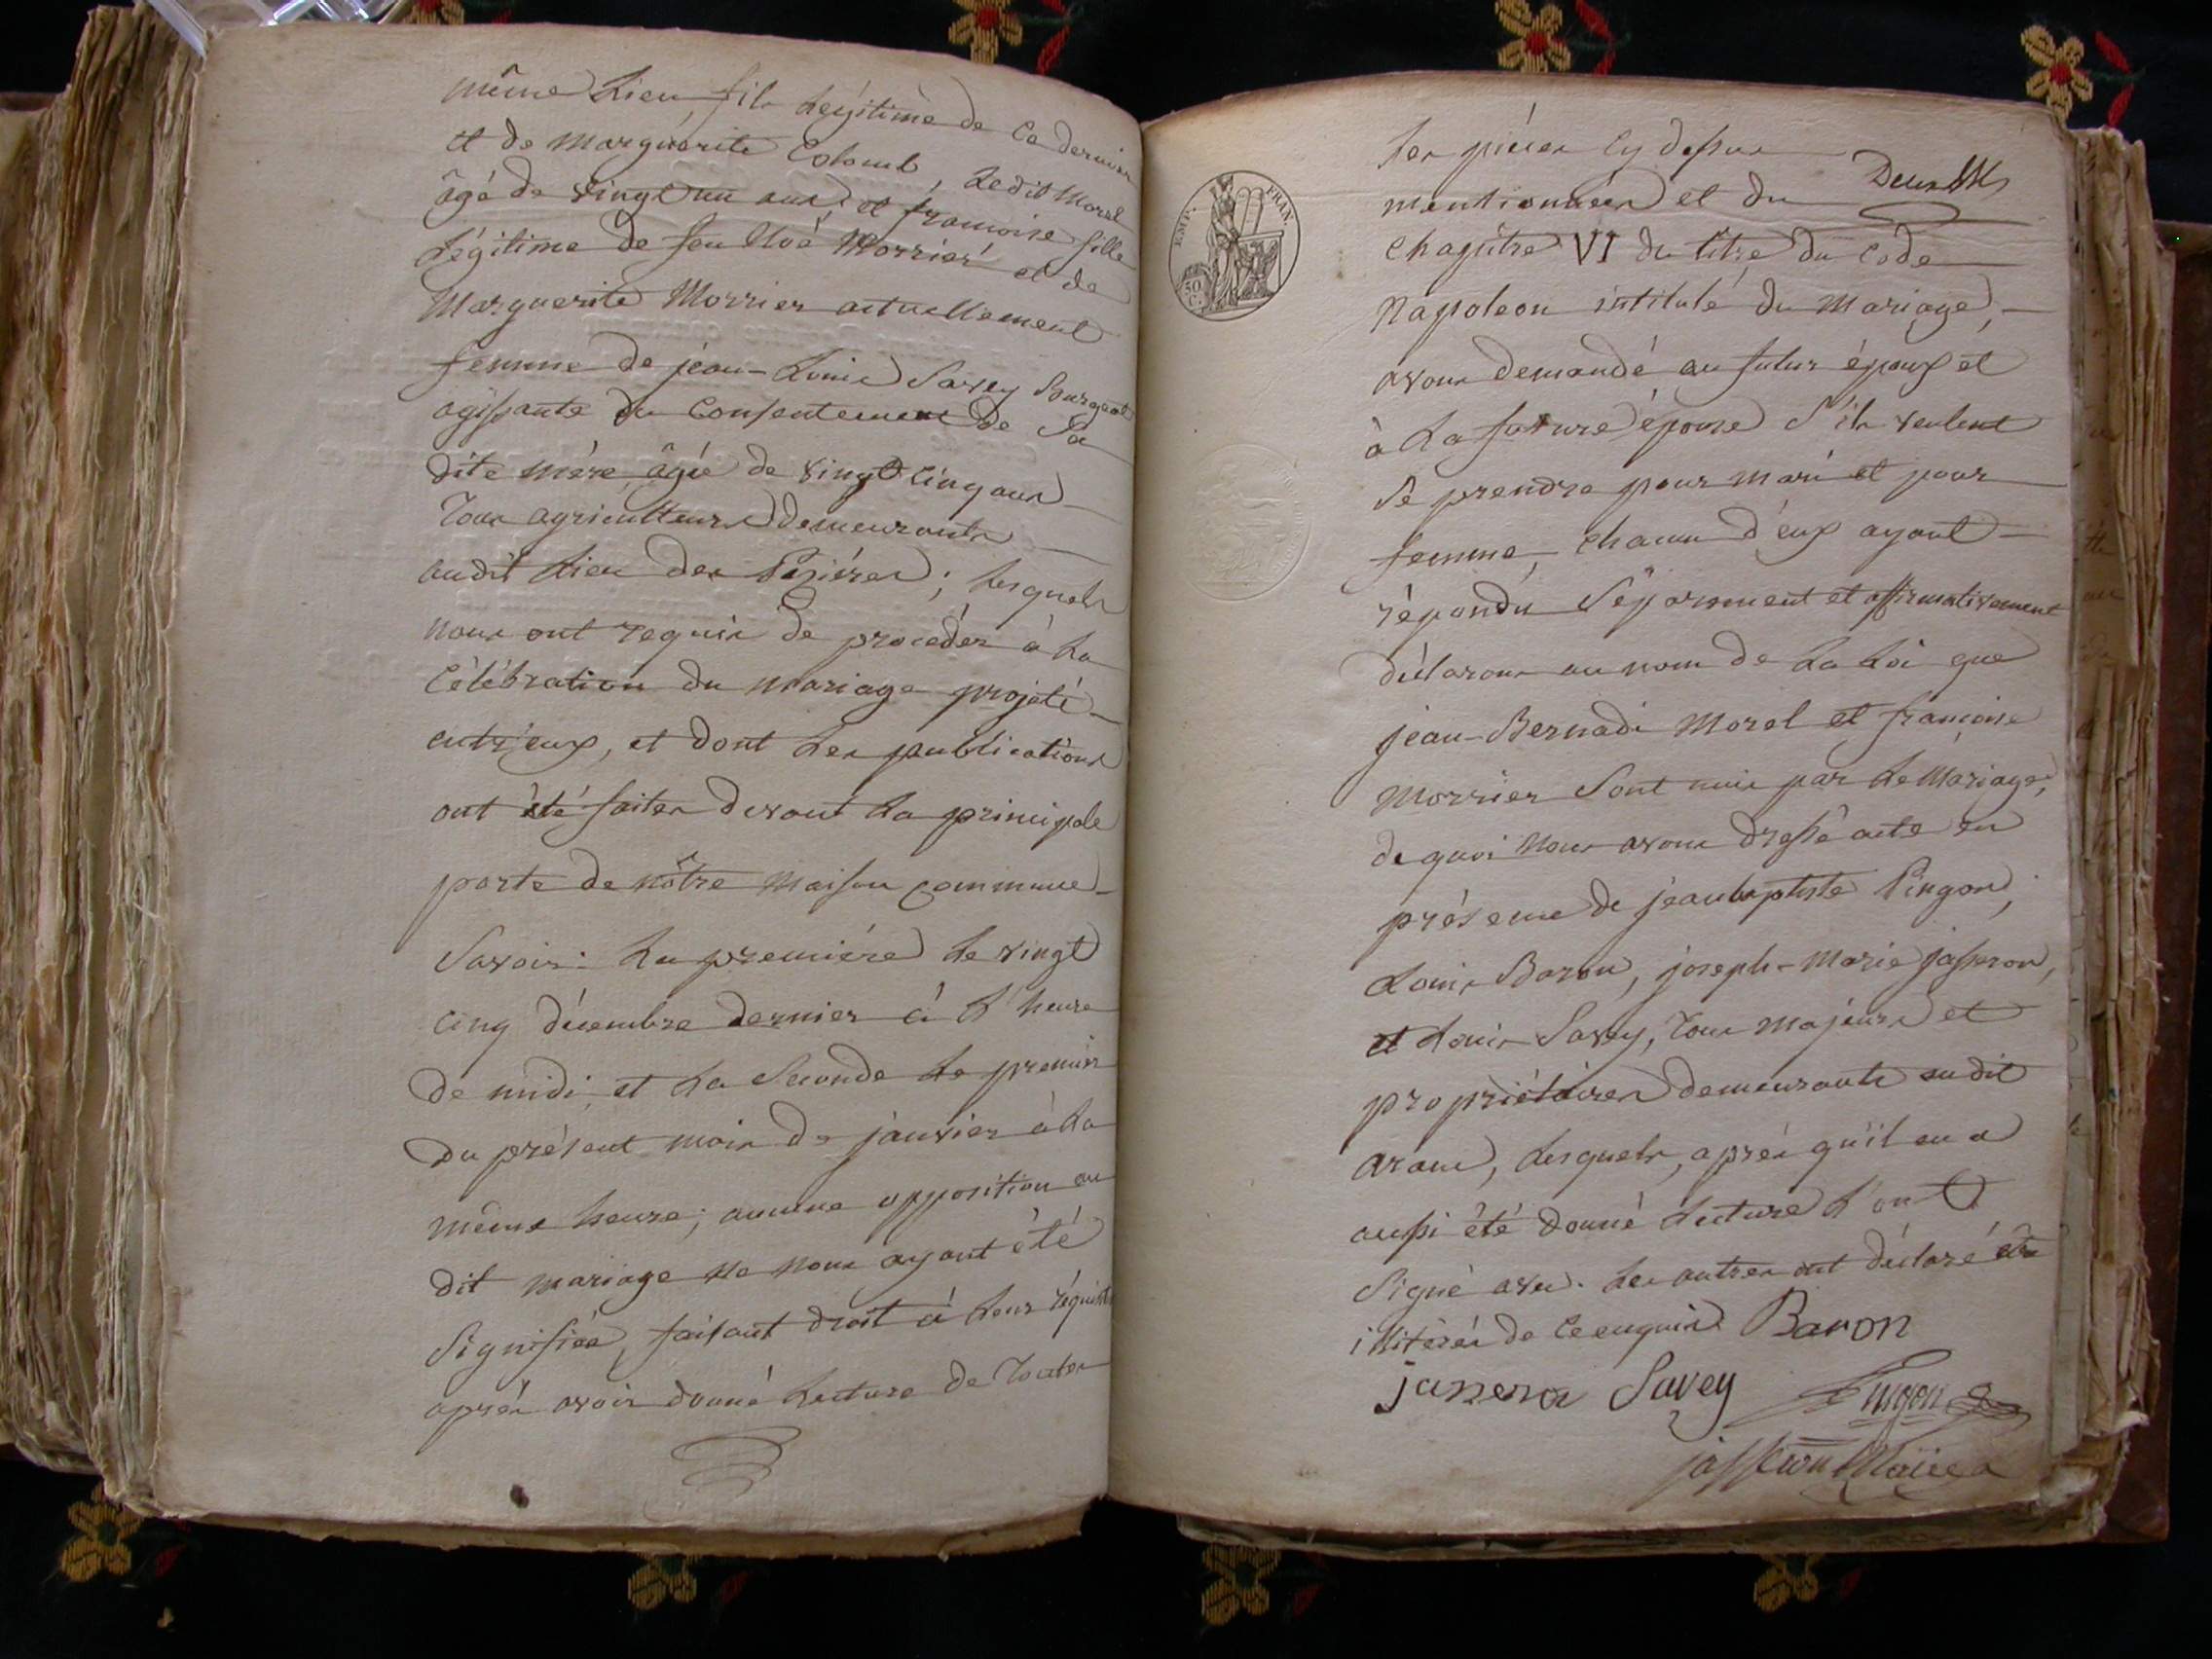 même Lieu, fils Légitime de ce dernier
et de Marguerite Colomb, Ledit Morel
âgé de vingt un ans, et francoise fille
Légitime de feu Morrier et de
Marguerite Morrier actuellement
femme de jean-Louis Savey
agissante du Consentement de Sa
dite mère, âgée de vingt cinq ans
Tous agriculteurs demeurants
audit Lieu des ; Lesquels
nous ont requis de proceder à La
Célébration du mariage projeté
entr'eux, et dont Les publications
ont été faites devant La principale
porte de nôtre maison commune
Savoir: La premiére Le vingt
cinq décembre dernier à L'heure
de midi, et La Seconde Le premier
du présent mois de janvier à La
même heure; aucune opposition au
dit mariage ne nous ayant été
Signifiée, faisant droit à Leur
aprés avoir donné Lecture de Toutes
Les piéces cy dessus
mentionnées et du
Chapitre VI du titre du Code
Napoleon intitulé du Mariage,
avons demandé au futur époux et
à La future épouse S'ils veulent
se prendre pour mari et pour
femme, chacun d'eux ayant
répondu Séparement et affirmativement
déclarons au nom de La Loi que
jean-Bernadi Morel et francoise
Morrier Sont unis par Le Mariage,
de quoi Nous avons dressé acte en
présence de jeanbaptiste Pingon,
Louis Baron, joseph-Marie jasseron,
et Louis Savey, Tous majeurs et
propriétaires demeurants audit
arane, Lesquels, aprés qu'il en a
aussi été donné Lecture L'ont
Signé avec. Les autres ont déclaré être
illitérés de ce enquis Baron
Savey Pingon
jasseron Maire
EMP. FRAN.
50 C.